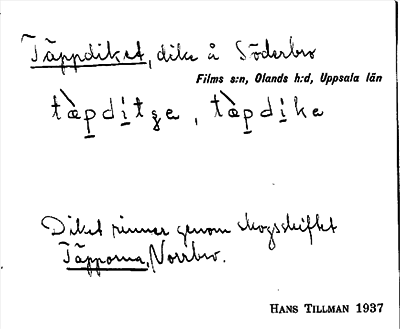 Täppdiket, dike å Söderbro
Films s:n, Olands h:d, Uppsala län
tæ̀pditʒe, tæ̀pdike
Diket rinner genom skogsskiftet
Täpporna, Norrbro.
HANS TILLMAN 1937